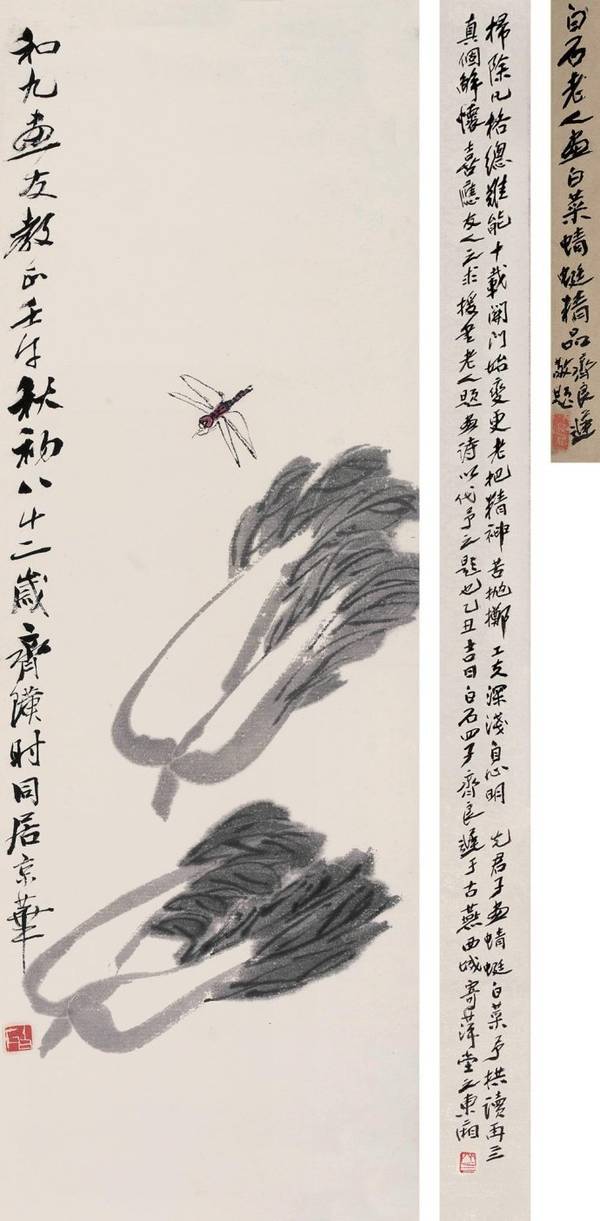 白石老人畫白菜蜻蜓精品齊良遲
敬題
掃除凡格總難能十載關門始變更老把精神苦拋擲工夫深淺自心明 先君子畫蜻蜓白菜予拱讀再三
真個解懷喜應友人之求援書老人題畫詩以代予之題也乙丑吉日白石四子齊良遲于古燕西城寄萍堂之東廂
和九畫友教正壬午秋初八十二歲齊璜時同居京華